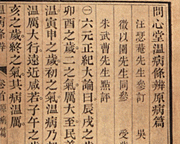 問心堂溫病條辨原病篇
汪瑟菴先生參訂 吳
徵以園先生同參
朱武曹先生點評
一六元正紀大論曰辰戌之
卯酉之歲二之氣厲大至民
溫寅申之歲初之氣溫病
溫厲大行遠近咸若子午之
亥之歲終之氣其病溫厲